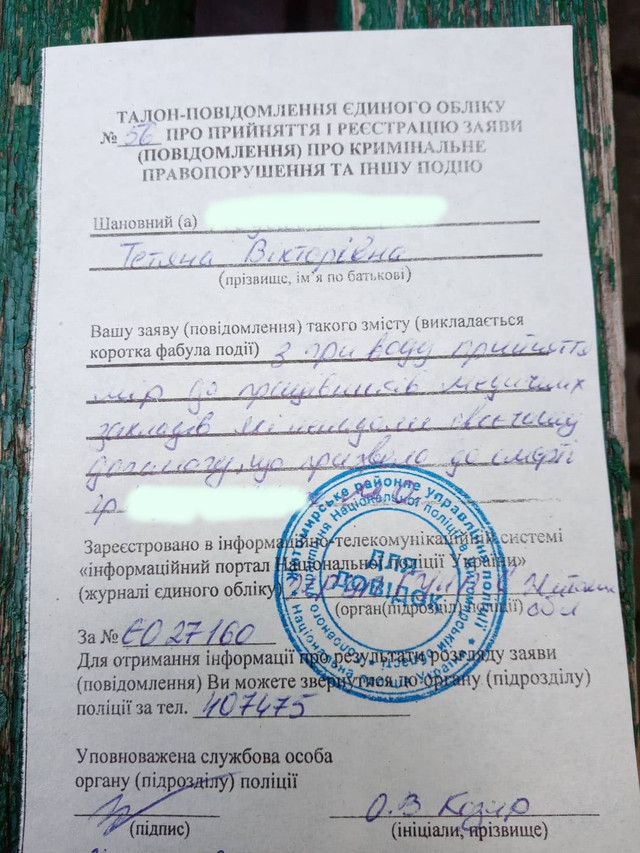 ТАЛОН-ПОВІДОМЛЕННЯ ЄДИНОГО ОБЛІКУ
№ 56 ПРО ПРИЙНЯТТЯ І РЕЄСТРАЦІЮ ЗАЯВИ
(ПОВІДОМЛЕННЯ) ПРО КРИМІНАЛЬНЕ
ПРАВОПОРУШЕННЯ ТА ІНШУ ПОДІЮ
Шановний (а)
Тетяна Вікторівна
(прізвище, ім'я по батькові)
Вашу заяву (повідомлення) такого змісту (викладається
коротка фабула події) з приводу прийняття
мір до працівників медичних
закладів які не надали свочасну
допомогу, що призвело до смерті
гр.
Зареєстровано в інформаційно-телекомунікаційній системі
«інформаційний портал Національної поліції України»
(журналі єдиного обліку)
(орган(підрозділ) поліції)
За № ЄО 27160
Для отримання інформації про результати розгляду заяви
(повідомлення) Ви можете звернутися до органу (підрозділу)
поліції за тел. 407475
Уповноважена службова особа
органу (підрозділу) поліції
О.В Козир
(підпис) (ініціали, прізвище)
Житомирське районне управління поліції
ДЛЯ
ДОВІДОК